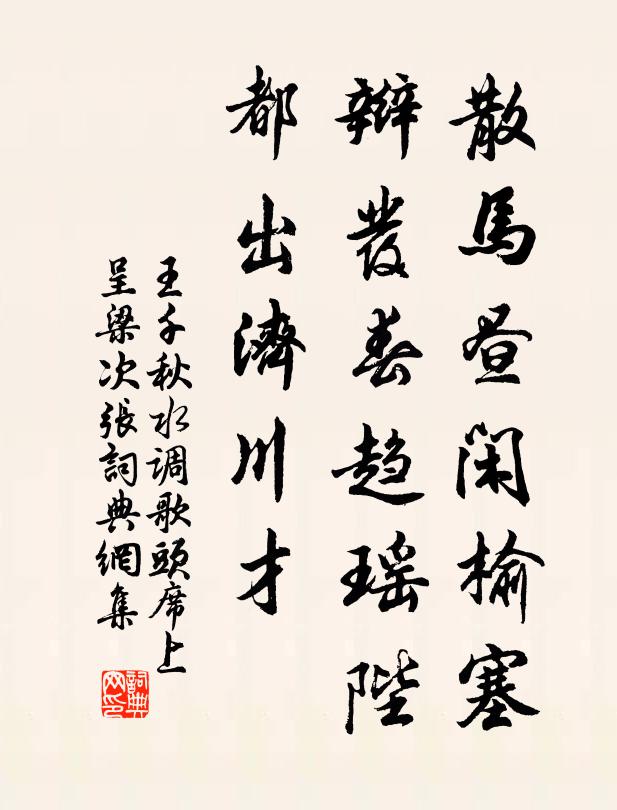 散馬晝閑榆塞
辮發春趨瑶陛
都出濟川才
王千秋水调歌頭席上
呈梁次張詞典網集
詞典网印